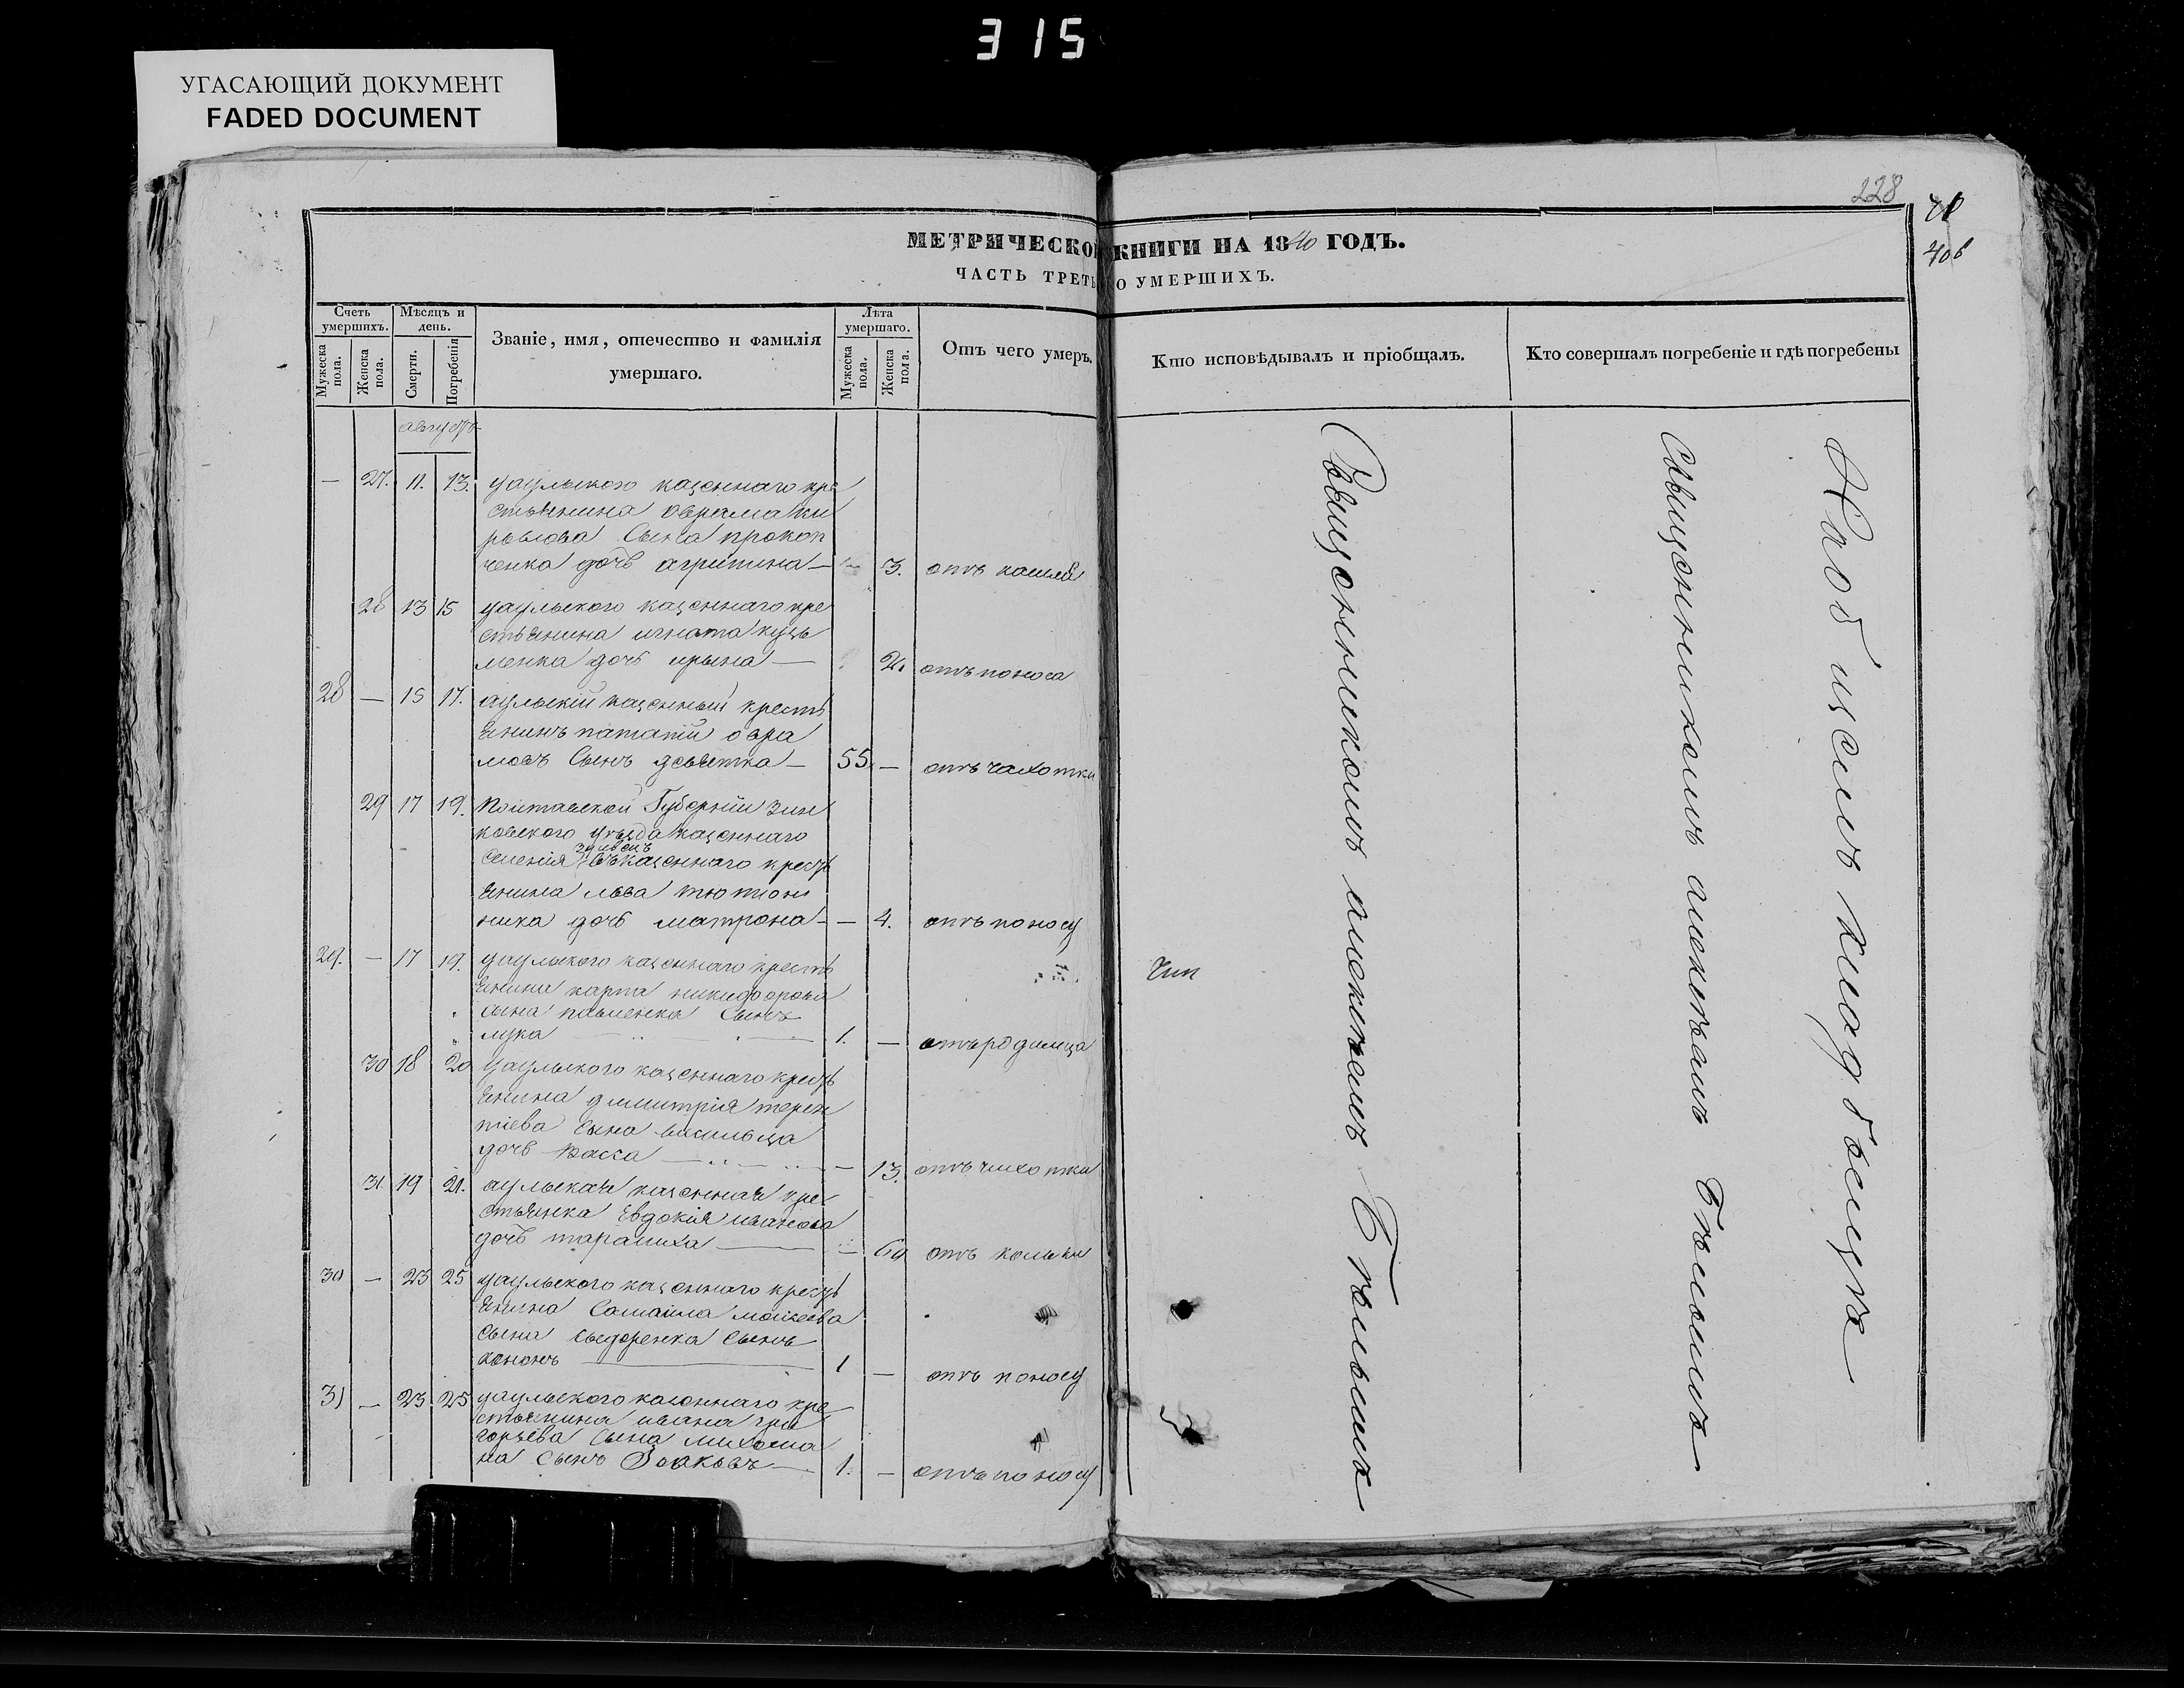 315
УГАСАЮЩИЙ ДОКУМЕНТ
FADED DOCUMENT
228
406
МЕТРИЧЕСКОЙ КНИГИ НА 1840 ГОДЪ.
ЧАСТЬ ТРЕТЬ О УМЕРШИХЪ.
Счетъ умершихъ.
Мужеска пола.
Женска пола.
Мѣсяцъ и день.
Смерти.
Погребенія
Званіе, имя, отечество и фамилія умершаго.
Лѣта умершаго.
Мужеска пола.
Женска пола.
Отъ чего умеръ.
Кто исповѣдывалъ и пріобщалъ.
Кто совершалъ погребеніе и гдѣ погребены
августъ
— 27. 11. 13. уаульского казеннаго кре
стьянина аврама ки
рылова сына прокоп
ченка дочь агрипина — 3. отъ кашля
28 13 15 уаульского казеннаго кре
стьянина игната кузь
менка дочь ирына — 2. отъ поноса
28 — 15 17. аульскій казенный кресть
янинъ патапій авра
мовъ сынъ девятка — 55. — отъ чахотки
29 17 19. Полтавской Губерніи зин
ковского уѣзда казеннаго
селенія казеннаго кресть
янина льва тютюн
ника дочь матрона — — 4. отъ поносу
29. — 17 19. уаульского казеннаго кресть
янина карпа никифорова
сына сынъ
лука 1. — отъ родимца
30 18 20 уаульского казеннаго кресть
янина димитрія терен
тіева сына васильца
дочь васса — 13. отъ чихотки
31. 19 21. аульская казенная кре
стьянка Евдокія иванова
дочь тараниха — отъ кольки
30 — 23 25 уаульского казеннаго кресть
янина самаила моисеева
сына сыдоренка сынъ
кононъ 1 — отъ поносу
31 — 23. 25 уаульского казеннаго кре
стьянина ивана гри
горьева сына
на сынъ 1. — отъ поносу
Священникомъ алексѣемъ Бѣлымъ
Священникомъ алексѣемъ Бѣлымъ
На общемъ кладбищѣ